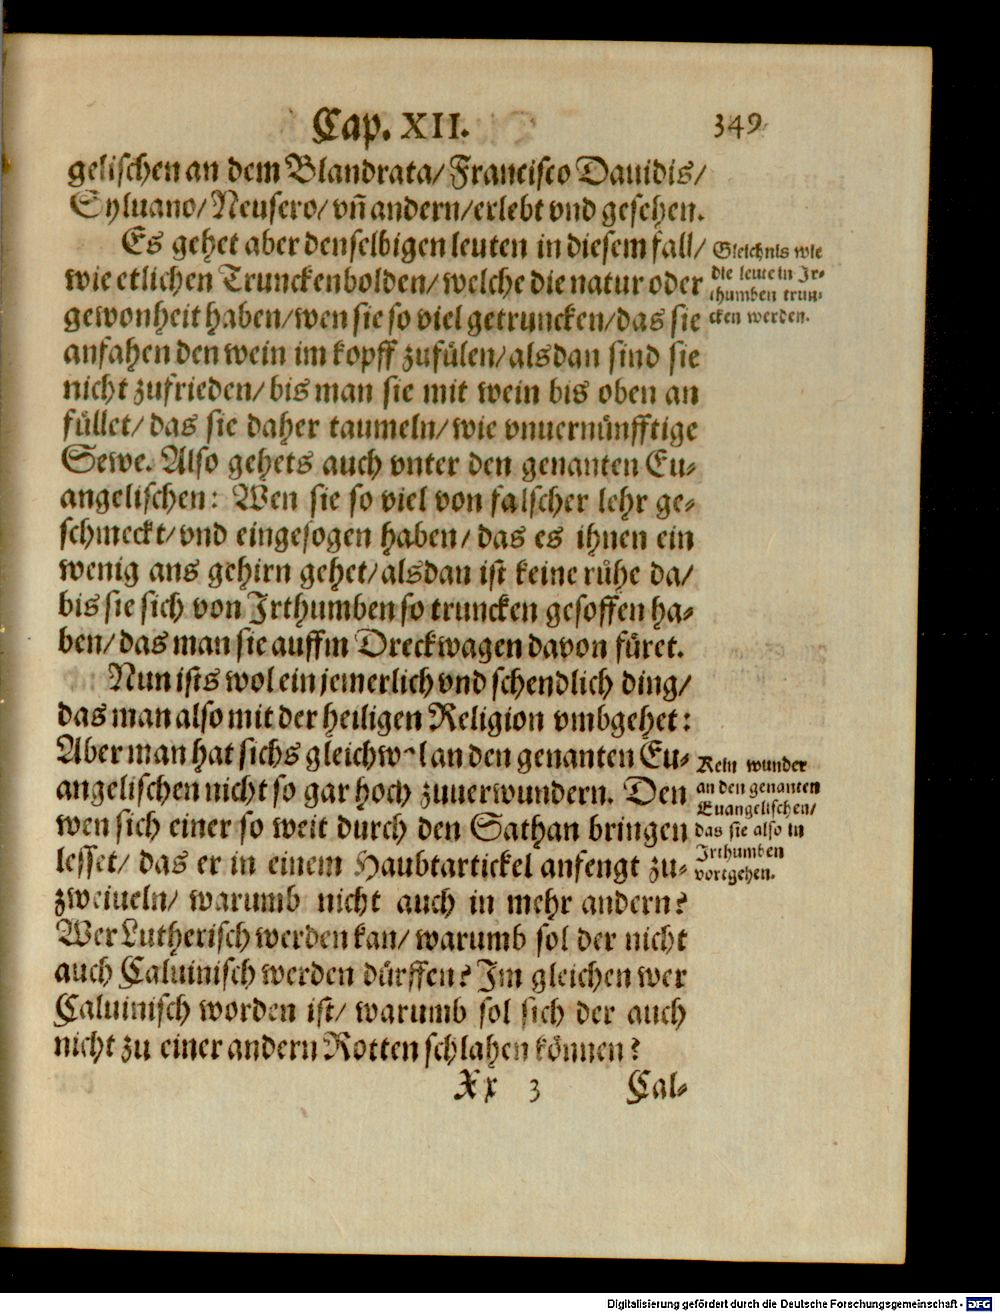 Cap. XII. 349
gelischen an dem Blandrata/ Francisco Dauidis/
Syluano/ Neusero/ vñ andern/ erlebt vnd gesehen.
Es gehet aber denselbigen leuten in diesem fall/
wie etlichen Trunckenbolden/ welche die natur oder
gewonheit haben/ wen sie so viel getruncken/ das sie
anfahen den wein im kopff zufülen/ alsdan sind sie
nicht zufrieden/ bis man sie mit wein bis oben an
füllet/ das sie daher taumeln/ wie vnuernünfftige
Sewe. Also gehets auch vnter den genanten Eu-
angelischen: Wen sie so viel von falscher lehr ge-
schmeckt/ vnd eingesogen haben/ das es ihnen ein
wenig ans gehirn gehet/ alsdan ist keine rühe da/
bis sie sich von Irthumben so truncken gesoffen ha-
ben/ das man sie auffm Dreckwagen davon füret.
Nun ists wol ein jemerlich vnd schendlich ding/
das man also mit der heiligen Religion vmbgehet:
Aber man hat sichs gleichwol an den genanten Eu-
angelischen nicht so gar hoch zuuerwundern. Den
wen sich einer so weit durch den Sathan bringen
lesset/ das er in einem Haubtartickel anfengt zu-
zweiueln/ warumb nicht auch in mehr andern?
Wer Lutherisch werden kan/ warumb sol der nicht
auch Caluinisch werden dürffen? Im gleichen wer
Caluinisch worden ist/ warumb sol sich der auch
nicht zu einer andern Rotten schlahen können?
Xx 3 Cal-
Gleichnis wie
die leute in Ir-
thumben trun-
cken werden.
Kein wunder
an den genanten
Euangelischen/
das sie also in
Irthumben
vortgehen.
Digitalisierung gefördert durch die Deutsche Forschungsgemeinschaft - DFG